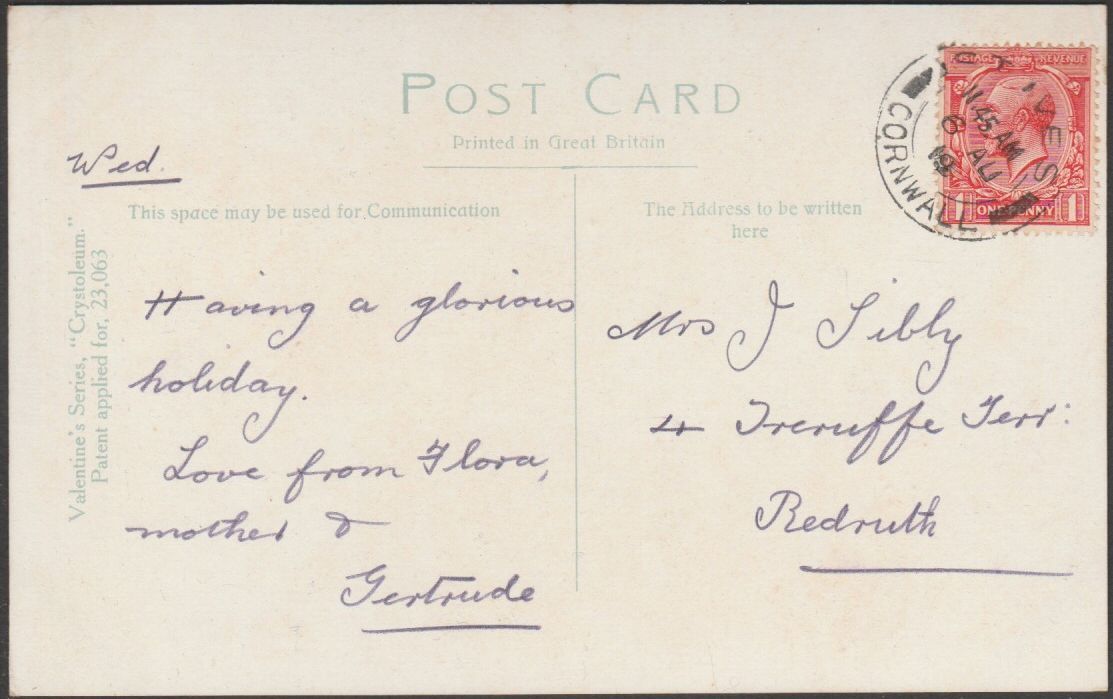 POST CARD
Printed in Great Britain
Wed.
This space may be used for Communication
The Address to be written
here
Valentine's Series, "Crystoleum."
Patent applied for, 23,063
Having a glorious
holiday.
Love from Flora,
mother &
Gertrude
Mrs J Sibly
4 Treruffe Terr:
Redruth
POSTAGE REVENUE
1 ONE PENNY 1
ST IVES
11.45 AM
6 AU
CORNWALL